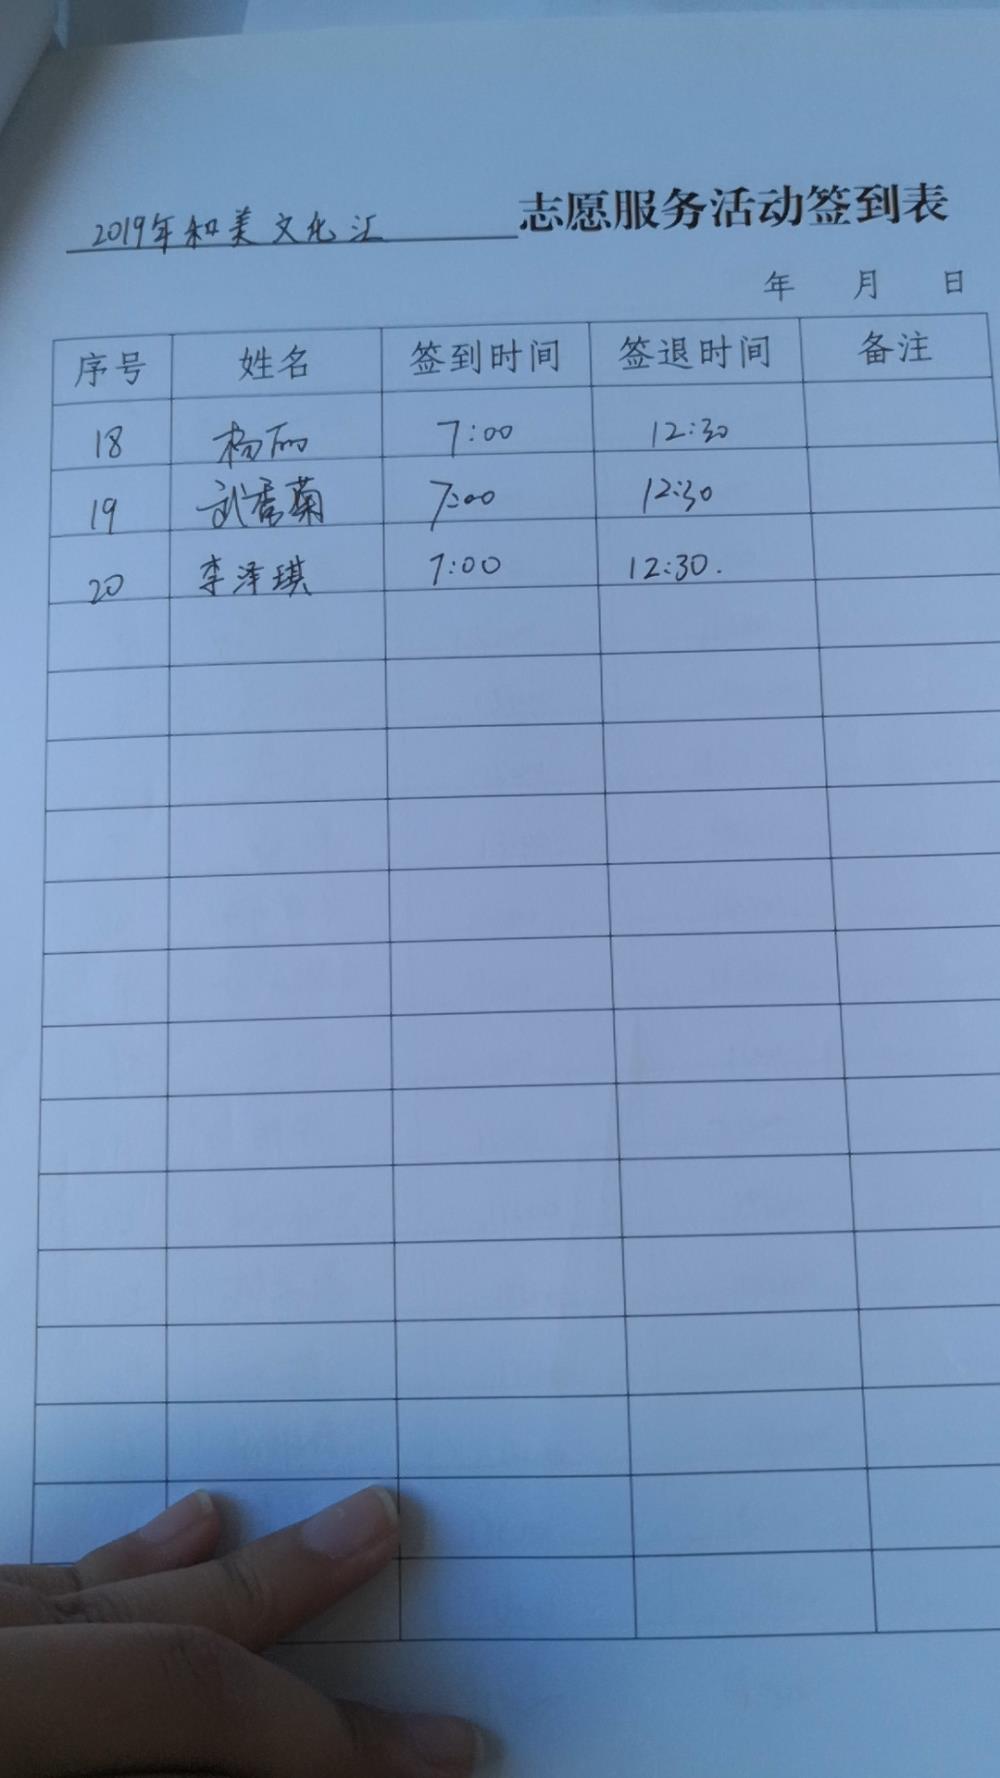 2019年和美文化汇 志愿服务活动签到表
年 月 日
序号 姓名 签到时间 签退时间 备注
18 杨丽 7:00 12:30
19 武香菊 7:00 12:30
20 李泽琪 7:00 12:30.